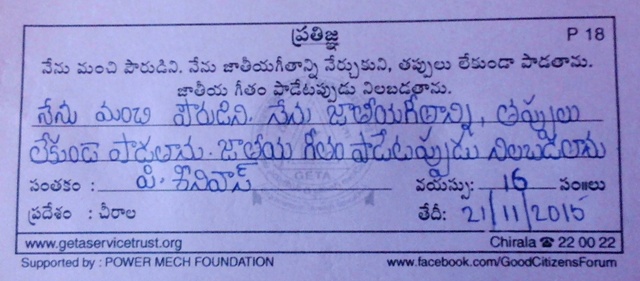 ప్రతిజ్ఞ
P 18
నేను మంచి పౌరుడిని. నేను జాతీయగీతాన్ని నేర్చుకుని, తప్పులు లేకుండా పాడతాను.
జాతీయ గీతం పాడేటప్పుడు నిలబడతాను.
నేను మంచి పౌరుడిని. నేను జాతీయగీతాన్ని, తప్పులు
లేకుండా పాడతాను. జాతీయ గీతం పాడేటప్పుడు నిలబడతాను
GETA
సంతకం : పి. శీనివాస్ వయస్సు: 16 సం॥లు
ప్రదేశం : చీరాల తేదీ: 21/11/2015
www.getaservicetrust.org Chirala ☎ 22 00 22
Supported by : POWER MECH FOUNDATION www.facebook.com/GoodCitizensForum